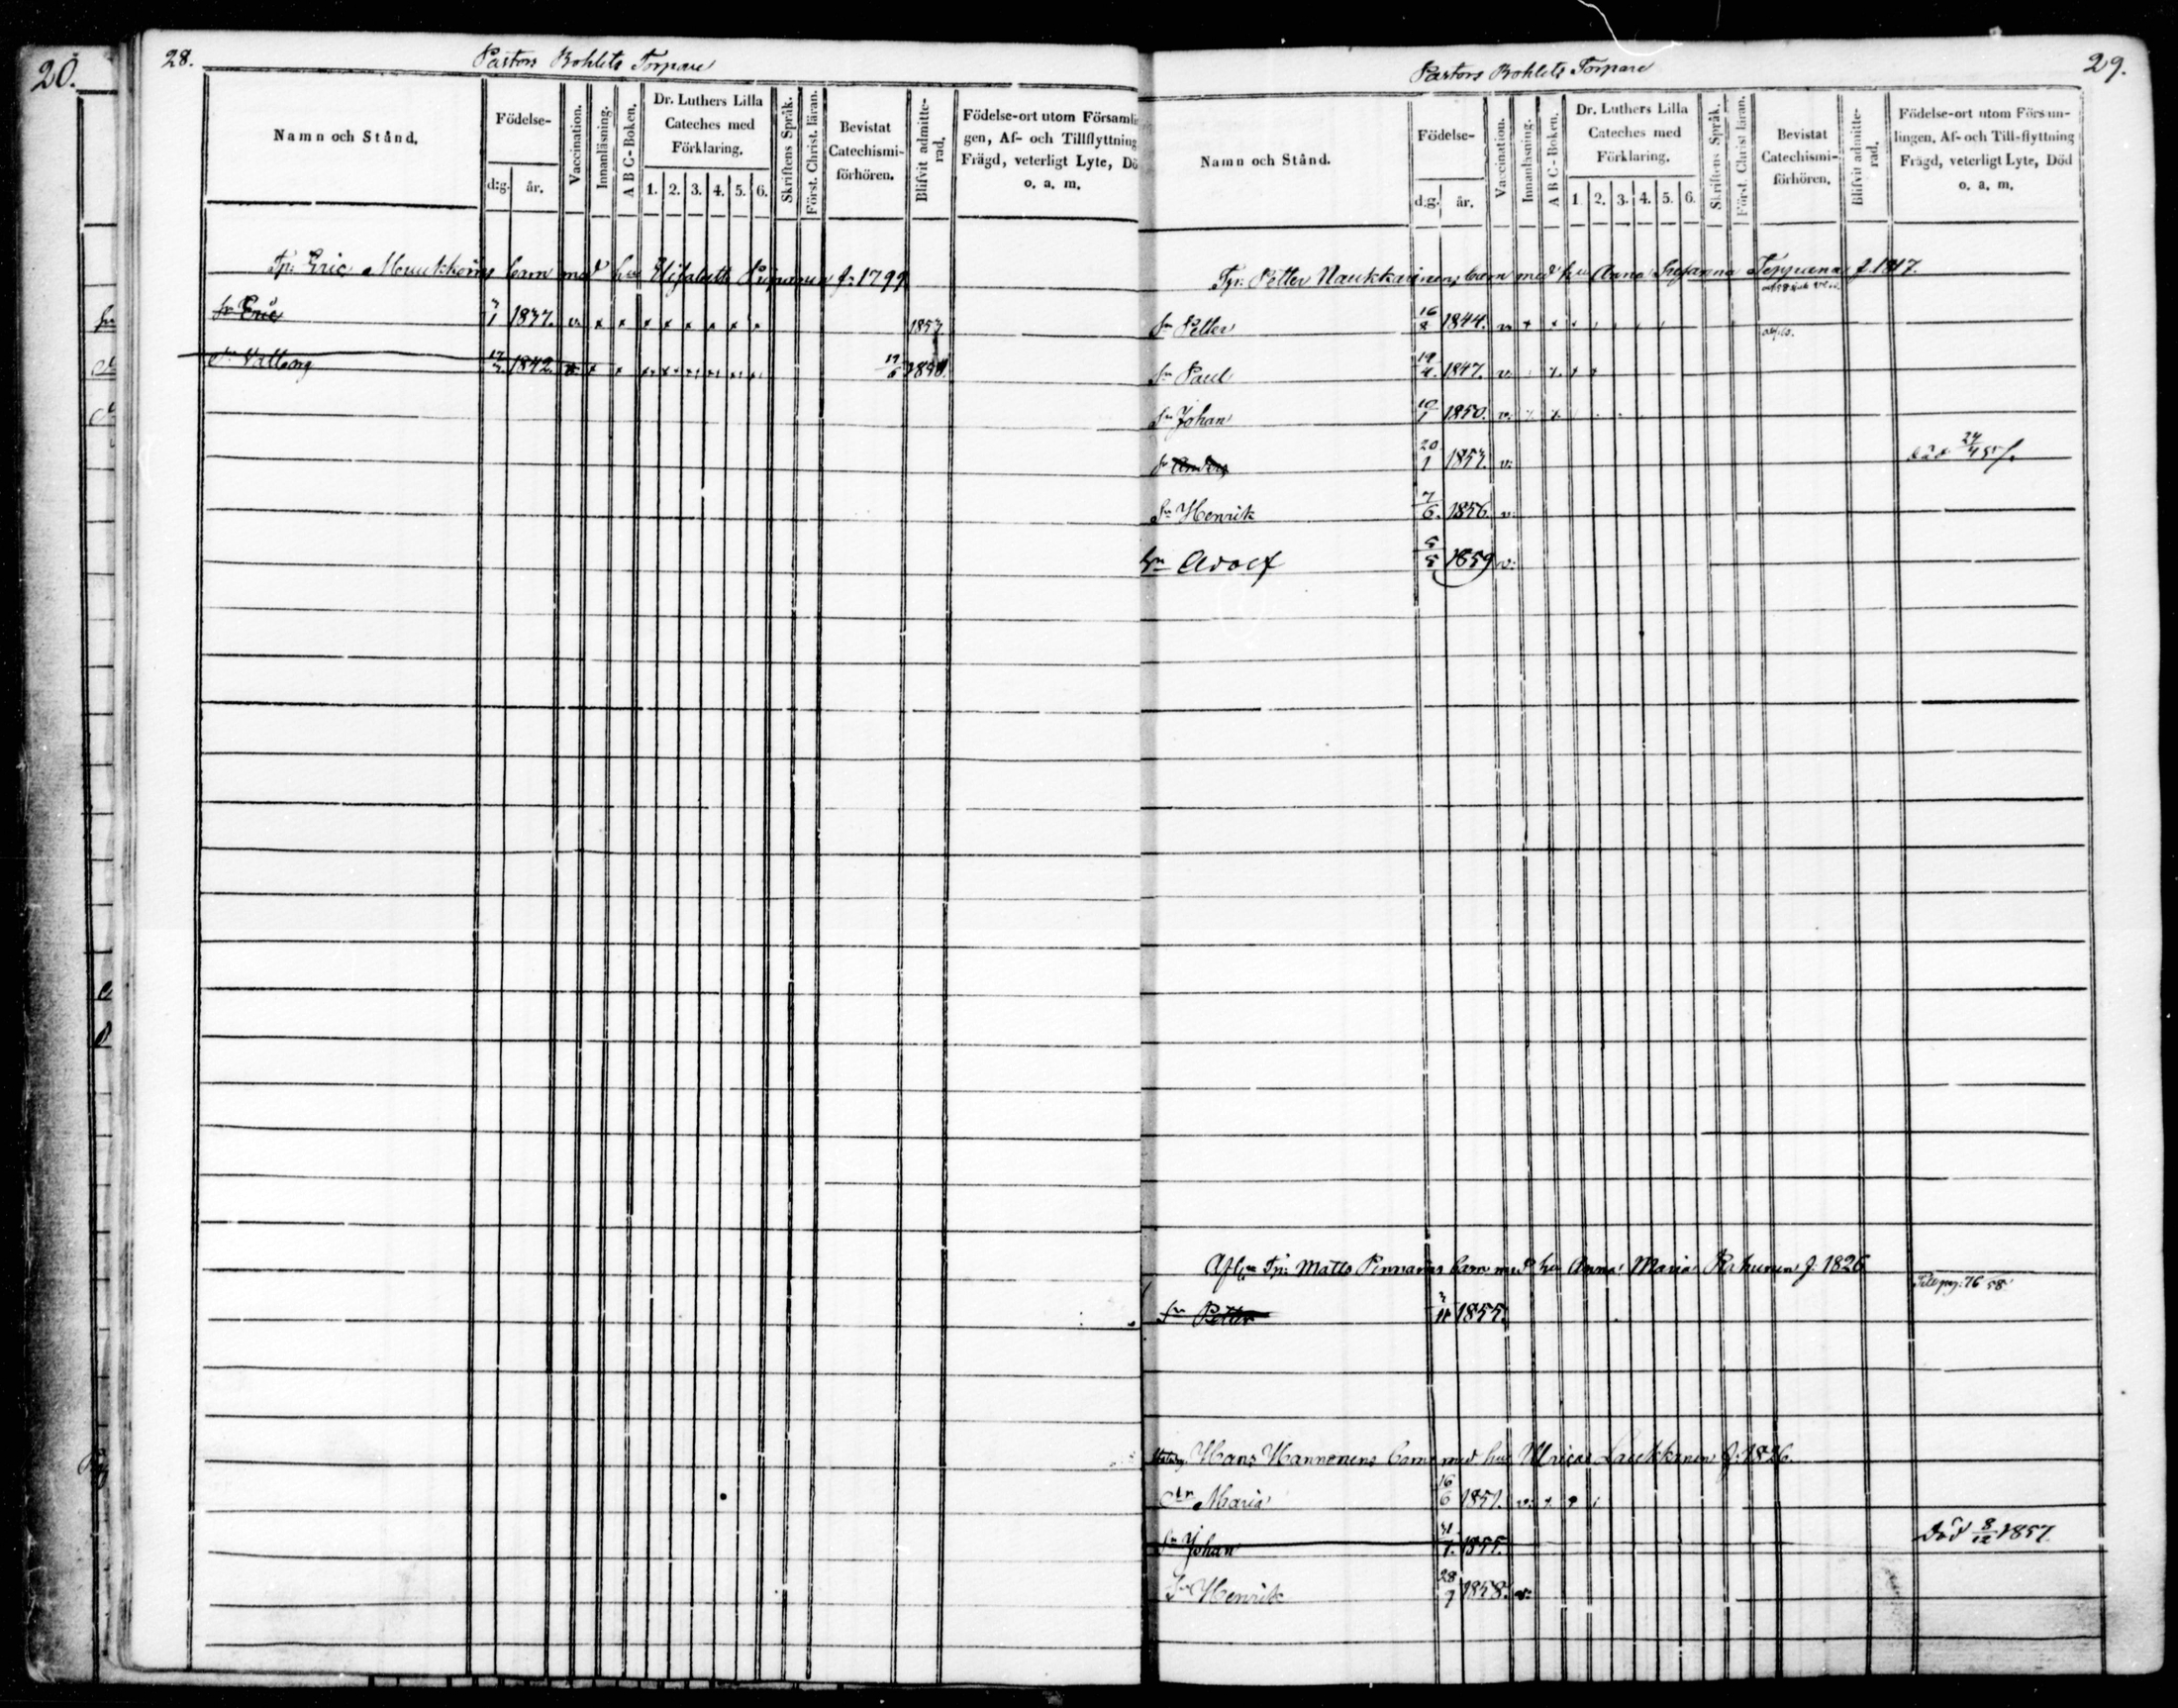 20.
28.
Pastors Bohlets Torpare
Namn och Stånd.
Födelse-
d:g.
år.
Vaccination.
Innanläsning.
A B C-Boken.
Dr. Luthers Lilla
Cateches med
Förklaring.
1. 2. 3. 4. 5. 6.
Skriftens Språk.
Först. Christ. läran.
Bevistat
Catechismi-
förhören.
Blifvit admitte-
rad.
Födelse-ort utom Församli
gen, Af- och Tillflyttning
Frägd, veterligt Lyte, Dö
o. a. m.
Tp: Eric barn med hu Elisabeth f: 1799
Sn Eric 1837. v: x x x x x x x x 1853
Dr Valborg 1842. v: x x 1858.
29.
Pastors Bohlets Torpare
Namn och Stånd.
Födelse-
d:g.
år.
Vaccination.
Innanläsning.
A B C-Boken.
Dr. Luthers Lilla
Cateches med
Förklaring.
1. 2. 3. 4. 5. 6.
Skriftens Språk.
Först. Christ läran.
Bevistat
Catechismi-
förhören.
Blifvit admitte-
rad.
Födelse-ort utom Försun-
lingen, Af- och Till-flyttning
Frägd, veterligt Lyte, Död
o. a. m.
Tp: Petter Naukkarinens barn med hu Anna f. 1817.
Sn Petter 16/8 1844. v:
Sn Paul 19/4. 1847. v:
Sn Johan 10/1 1850. v:
Sn Anders 20/1 1853. v:
Sn Henrik 7/6. 1856. v:
Sn Adolf 5/5 1859 v:
Tp: Matts Pennanens barn med hu Anna Maria f: 1826
Sn Petter 1855.
Hans Hannonens barn med hu Ulrica Laukkanen f: 1826.
Dtr Maria 16/6 1851. v:
Sn Johan 1855. Död 8/12 1857.
Sn Henrik 28/9 1858. v: